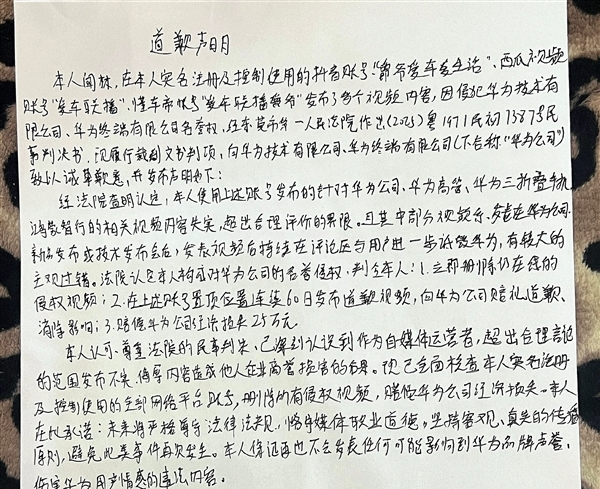 道歉声明
本人闻林,在本人实名注册及控制使用的抖音账号"郭爷爱车爱生活"、西瓜视频
账号"爱车联播"、懂车帝账号"爱车联播"发布了多个视频内容,因侵犯华为技术有
限公司、华为终端有限公司名誉权,经东莞市第一人民法院作出(2025)粤1971民初13875民
事判决书,现履行裁判文书判项,向华为技术有限公司、华为终端有限公司(下合称"华为公司")
致以诚挚歉意,并发布声明如下:
经法院查明认定,本人使用上述账号发布的针对华为公司、华为高管、华为三折叠手机、
鸿蒙智行的相关视频内容失实,超出合理评价的界限。且其中部分视频系在华为公司
新品发布或技术发布会后,发表视频后持续在评论区与用户进一步诋毁华为,有较大的
主观过错。法院认定本人构成对华为公司的名誉侵权,判令本人:1.立即删除仍在线的
侵权视频;2.在上述账号置顶位置连续60日发布道歉视频,向华为公司赔礼道歉、
消除影响;3.赔偿华为公司经济损失25万元。
本人认可、尊重法院的民事判决,已深刻认识到作为自媒体运营者,超出合理言论
的范围发布不实、侮辱内容造成他人企业商誉损害的后果。现已全面核查本人实名注册
及控制使用的全部网络平台账号,删除所有侵权视频,赔偿华为公司经济损失。本人
在此承诺:未来将严格遵守法律法规,恪守媒体职业道德,坚持客观、真实的传播
原则,避免此类事件再次发生。本人保证再也不会发表任何可能影响到华为品牌声誉、
伤害华为用户情感的违法内容。